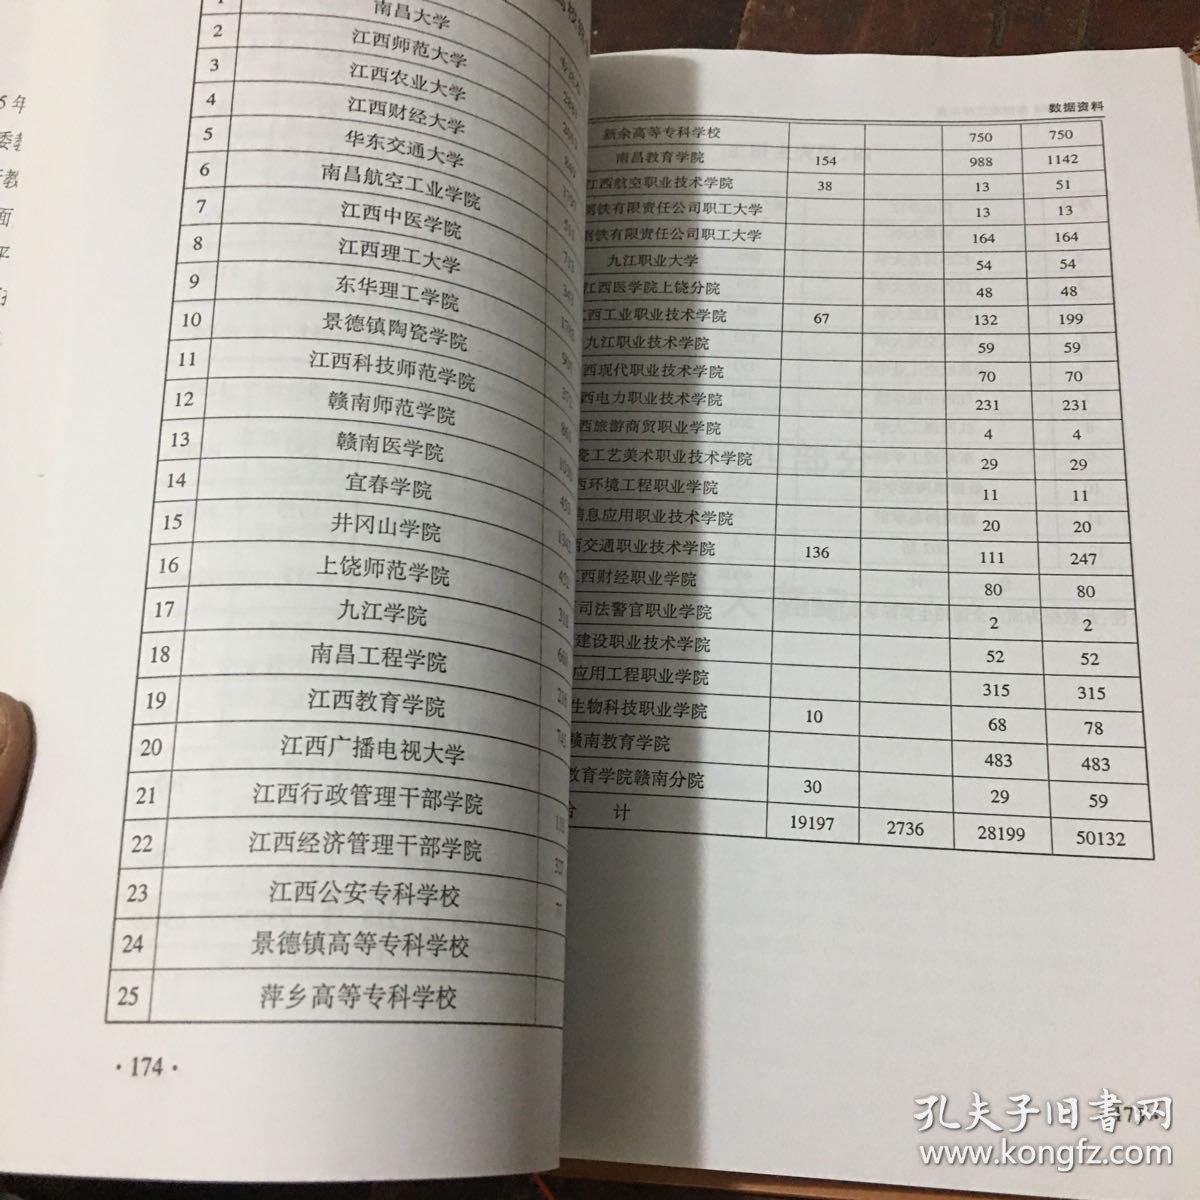 5年
面
1 南昌大学
2 江西师范大学
3 江西农业大学
4 江西财经大学
5 华东交通大学
6 南昌航空工业学院
7 江西中医学院
8 江西理工大学
9 东华理工学院
10 景德镇陶瓷学院
11 江西科技师范学院
12 赣南师范学院
13 赣南医学院
14 宜春学院
15 井冈山学院
16 上饶师范学院
17 九江学院
18 南昌工程学院
19 江西教育学院
20 江西广播电视大学
21 江西行政管理干部学院
22 江西经济管理干部学院
23 江西公安专科学校
24 景德镇高等专科学校
25 萍乡高等专科学校
·174·
数据资料
新余高等专科学校 750 750
南昌教育学院 154 988 1142
江西航空职业技术学院 38 13 51
钢铁有限责任公司职工大学 13 13
钢铁有限责任公司职工大学 164 164
九江职业大学 54 54
江西医学院上饶分院 48 48
西工业职业技术学院 67 132 199
九江职业技术学院 59 59
西现代职业技术学院 70 70
西电力职业技术学院 231 231
西旅游商贸职业学院 4 4
瓷工艺美术职业技术学院 29 29
西环境工程职业学院 11 11
信息应用职业技术学院 20 20
西交通职业技术学院 136 111 247
江西财经职业学院 80 80
司法警官职业学院 2 2
建设职业技术学院 52 52
应用工程职业学院 315 315
生物科技职业学院 10 68 78
赣南教育学院 483 483
教育学院赣南分院 30 29 59
合 计 19197 2736 28199 50132
孔夫子旧书网
www.kongfz.com